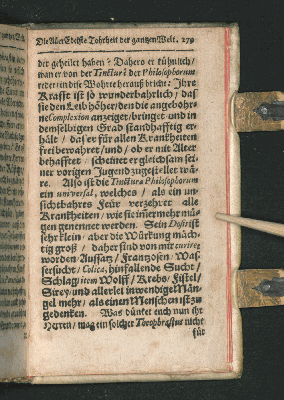 Die Aller Edelste Tohrheit der gantzen Welt. 279
der geheilet haben? Dahero er kühnlich/
wan er von der Tinctura der Philosophorum
redet/ in dise Wohrte herauß bricht: Ihre
Krafft ist so wunderbahrlich/ daß
sie den Leib höher/ den die angebohr-
ne Complexion anzeiget/ bringet und in
demselbigen Grad standhafftig er-
hält/ daß er für allen Kranckheiten
frei bewahret/ und/ ob er mit Alter
behafftet/ scheinet er gleichsam sei-
ner vorigen Jugend zugestellet wä-
re. Also ist die Tinctura Philosophorum
ein universal, welches/ als ein un-
sichtbahres Feür verzehret alle
Kranckheiten/ wie sie immer mehr mü-
gen genennet werden. Sein Dosis ist
sehr klein/ aber die Würckung mäch-
tig groß/ daher sind von mir curiret
worden Aussatz/ Frantzosen. Was-
sersucht/ Colica, hinfallende Sucht/
Schlag/ item Wolff/ Krebs/ Fistel/
Sirey/ und allerlei inwendige Män-
gel mehr/ als einen Menschen ist zu
gedencken. Was dünket euch nun ihr
Herren/ mag ein solcher Theophrastus nicht
für